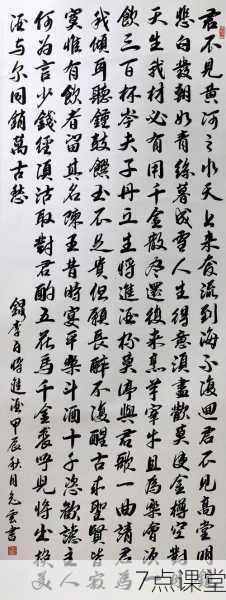 君不見黃河之水天上來奔流到海不復迴君不見高堂明鏡
悲白髮朝如青絲暮成雪人生得意須盡歡莫使金樽空對月
天生我材必有用千金散盡還復來烹羊宰牛且為樂會須一
飲三百杯岑夫子丹丘生將進酒杯莫停與君歌一曲請君為
我傾耳聽鐘鼓饌玉不足貴但願長醉不復醒古來聖賢皆寂
寞惟有飲者留其名陳王昔時宴平樂斗酒十千恣歡謔主人
何為言少錢徑須沽取對君酌五花馬千金裘呼兒將出換美
酒與爾同銷萬古愁
錄李白將進酒甲辰秋月克雲書
7点课堂